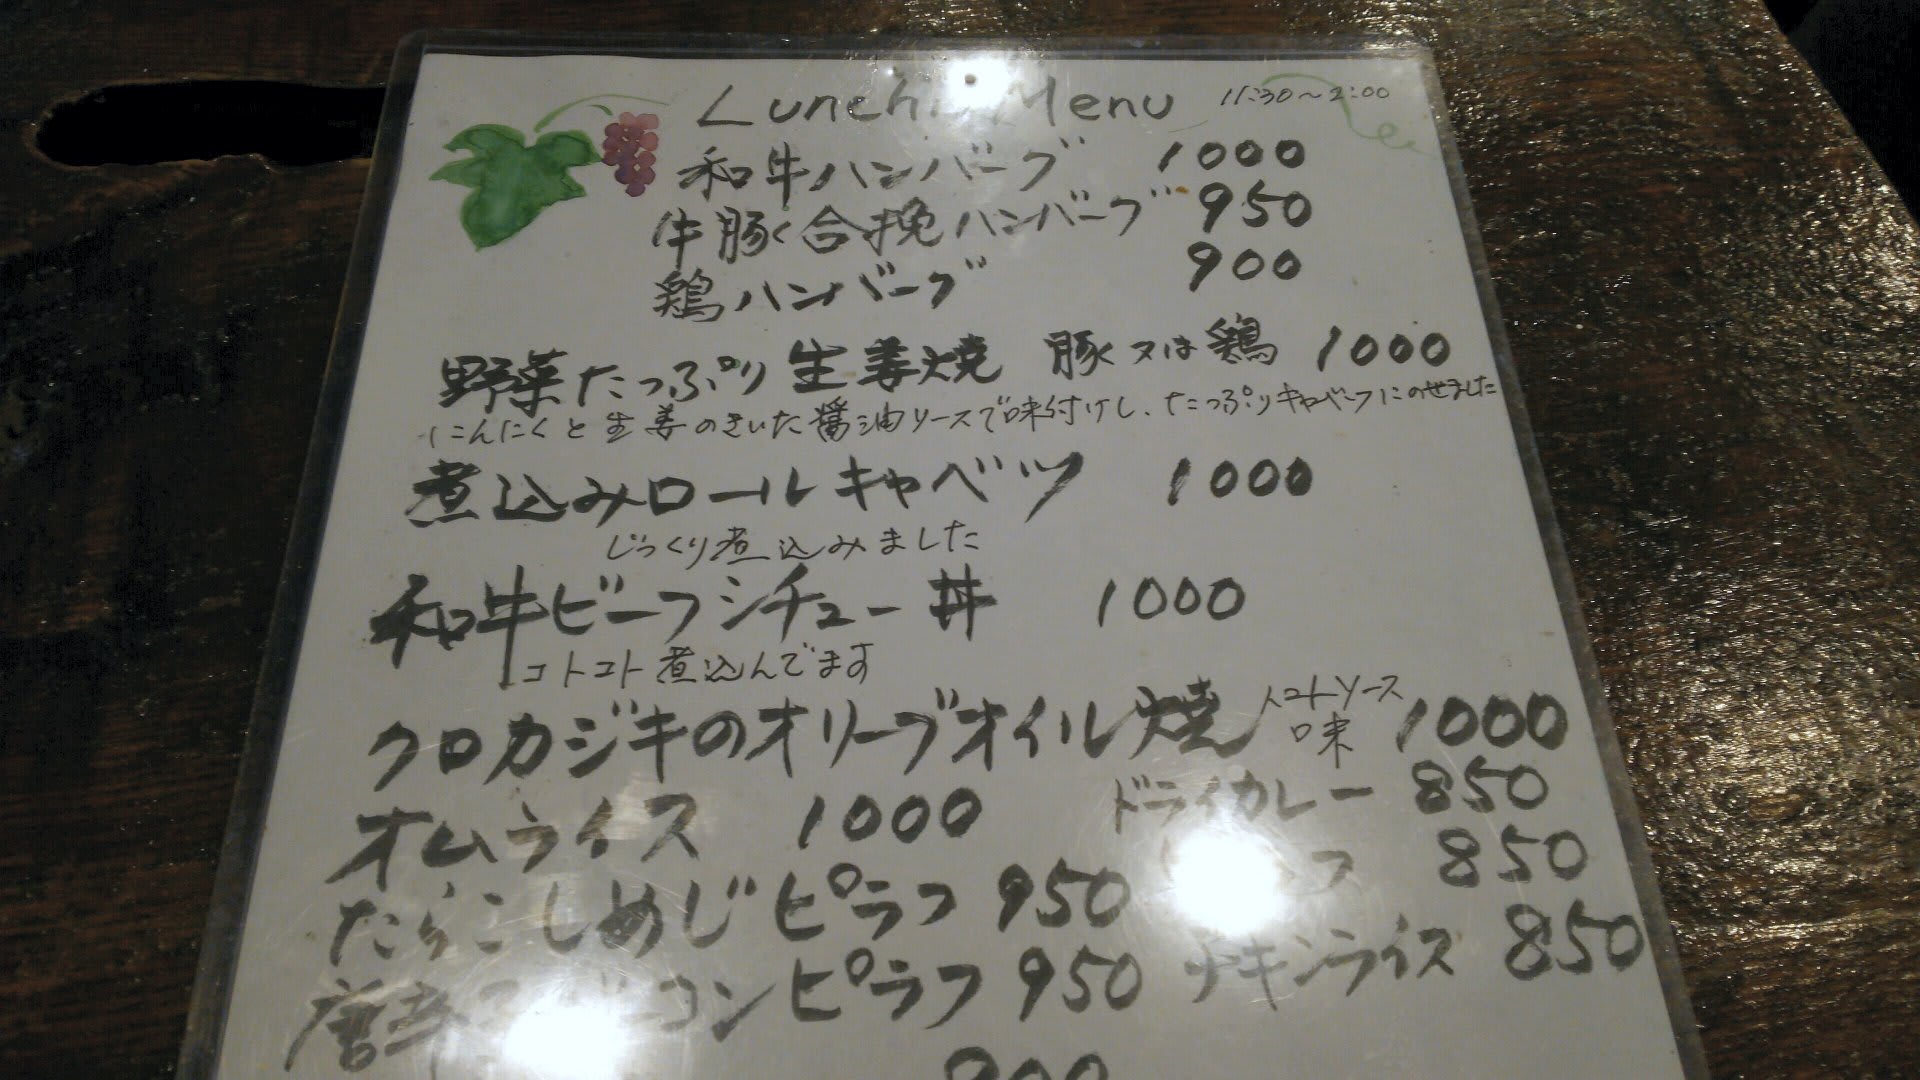 Lunch Menu 11:30～2:00
和牛ハンバーグ 1000
牛豚く合挽ハンバーグ 950
鶏ハンバーグ 900
野菜たっぷり生姜焼 豚又は鶏 1000
にんにくと生姜のきいた醤油ソースで味付けし、たっぷりキャベツにのせました
煮込みロールキャベツ 1000
じっくり煮込みました
和牛ビーフシチュー丼 1000
コトコト煮込んでます
クロカジキのオリーブオイル焼 トマトソース味 1000
オムライス 1000
ドライカレー 850
たらこしめじピラフ 950
フ 850
コンピラフ 950
チキンライス 850